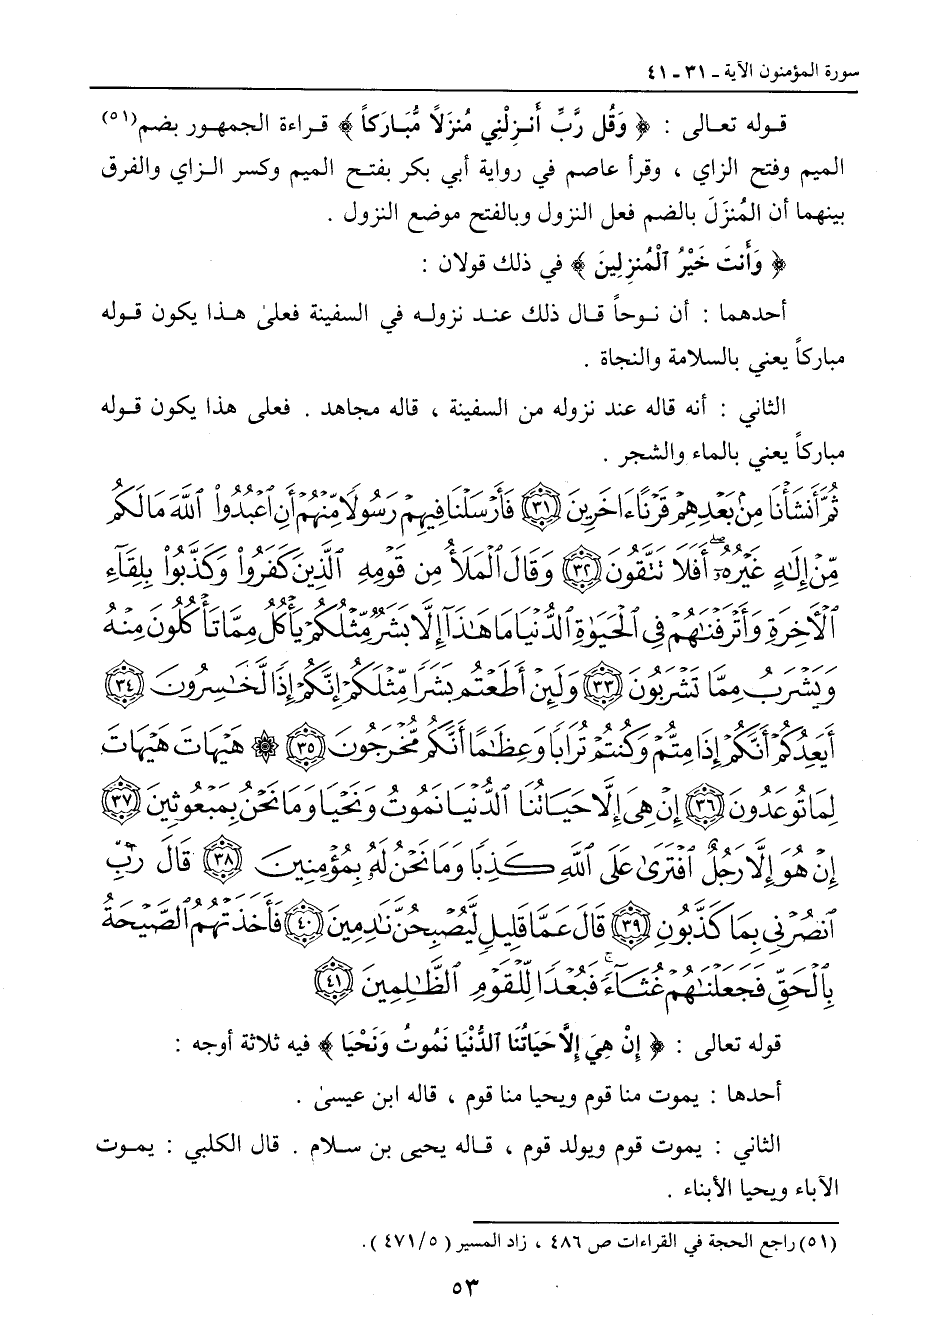 سورة المؤمنون الآية ـ ٣١ ـ ٤١
قوله تعالى : ﴿ وَقُل رَّبِّ أَنـزِلْنِي مُنزَلاً مُّبَـارَكاً ﴾ قـراءة الجمهـور بضم(٥١)
الميم وفتح الزاي ، وقرأ عاصم في رواية أبي بكر بفتـح الميم وكسر الـزاي والفرق
بينهما أن المُنزَلَ بالضم فعل النزول وبالفتح موضع النزول .
﴿ وَأَنتَ خَيْرُ ٱلْمُنزِلِينَ ﴾ في ذلك قولان :
أحدهما : أن نـوحاً قـال ذلك عنـد نزولـه في السفينة فعلىٰ هـذا يكون قـوله
مباركاً يعني بالسلامة والنجاة .
الثاني : أنه قاله عند نزوله من السفينة ، قاله مجاهد . فعلى هذا يكون قـوله
مباركاً يعني بالماء والشجر .
ثُمَّ أَنشَأْنَا مِنۢ بَعْدِهِمْ قَرْنًا ءَاخَرِينَ ﴿٣١﴾ فَأَرْسَلْنَا فِيهِمْ رَسُولًا مِّنْهُمْ أَنِ ٱعْبُدُوا۟ ٱللَّهَ مَا لَكُم
مِّنْ إِلَٰهٍ غَيْرُهُۥٓ أَفَلَا تَتَّقُونَ ﴿٣٢﴾ وَقَالَ ٱلْمَلَأُ مِن قَوْمِهِ ٱلَّذِينَ كَفَرُوا۟ وَكَذَّبُوا۟ بِلِقَآءِ
ٱلْأَخِرَةِ وَأَتْرَفْنَٰهُمْ فِى ٱلْحَيَوٰةِ ٱلدُّنْيَا مَا هَٰذَآ إِلَّا بَشَرٌ مِّثْلُكُمْ يَأْكُلُ مِمَّا تَأْكُلُونَ مِنْهُ
وَيَشْرَبُ مِمَّا تَشْرَبُونَ ﴿٣٣﴾ وَلَئِنْ أَطَعْتُم بَشَرًا مِّثْلَكُمْ إِنَّكُمْ إِذًا لَّخَٰسِرُونَ ﴿٣٤﴾
أَيَعِدُكُمْ أَنَّكُمْ إِذَا مِتُّمْ وَكُنتُمْ تُرَابًا وَعِظَٰمًا أَنَّكُم مُّخْرَجُونَ ﴿٣٥﴾ ۞ هَيْهَاتَ هَيْهَاتَ
لِمَا تُوعَدُونَ ﴿٣٦﴾ إِنْ هِىَ إِلَّا حَيَاتُنَا ٱلدُّنْيَا نَمُوتُ وَنَحْيَا وَمَا نَحْنُ بِمَبْعُوثِينَ ﴿٣٧﴾
إِنْ هُوَ إِلَّا رَجُلٌ ٱفْتَرَىٰ عَلَى ٱللَّهِ كَذِبًا وَمَا نَحْنُ لَهُۥ بِمُؤْمِنِينَ ﴿٣٨﴾ قَالَ رَبِّ
ٱنصُرْنِى بِمَا كَذَّبُونِ ﴿٣٩﴾ قَالَ عَمَّا قَلِيلٍ لَّيُصْبِحُنَّ نَٰدِمِينَ ﴿٤٠﴾ فَأَخَذَتْهُمُ ٱلصَّيْحَةُ
بِٱلْحَقِّ فَجَعَلْنَٰهُمْ غُثَآءً فَبُعْدًا لِّلْقَوْمِ ٱلظَّٰلِمِينَ ﴿٤١﴾
قوله تعالى : ﴿ إِنْ هِيَ إِلاَّ حَيَاتُنَا ٱلدُّنْيَا نَمُوتُ وَنَحْيَا ﴾ فيه ثلاثة أوجه :
أحدها : يموت منا قوم ويحيا منا قوم ، قاله ابن عيسىٰ .
الثاني : يموت قوم ويولد قوم ، قـاله يحيى بن سـلام . قال الكلبي : يمـوت
الآباء ويحيا الأبناء .
(٥١) راجع الحجة في القراءات ص ٤٨٦ ، زاد المسير ( ٥/ ٤٧١ ) .
٥٣